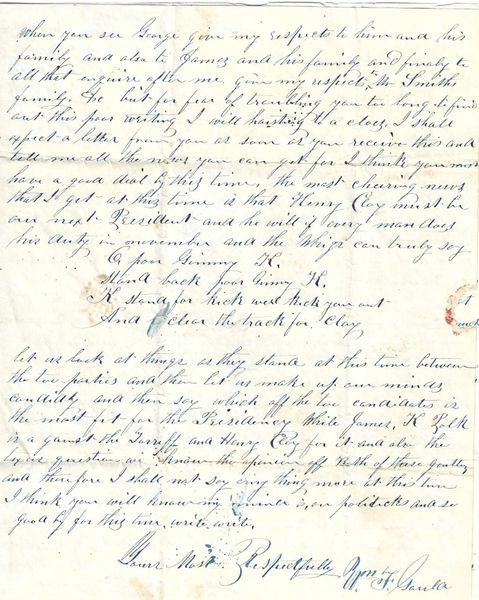 When you see George give my respects to him and his
family and also to James and his family and finaly to
all that enquire after me give my respects to Mr Smiths
family. &c but for fear of troubling you too long to find
out this poor writing I will to a close. I shall
expect a letter from you as soon as you receive this and
tell me all the news you can get for I think you must
have a good deal by this time, the most cheering news
that I get at this time is that Henry Clay must be
our next President and he will if every man does
his duty in november and the Whigs can truly say
O poor Gimmy K.
Stand back poor Gimmy K.
K stand for kick well kick you out
And clear the track for Clay
let us look at things as they stand at this time between
the two parties and then let us make up our minds
candidly and then say which off the two candidates is
the most fit for the Presidency While James, K Polk
is a gainst the Tarriff and Henry Clay for it and also the
question we know the off both of these
and therefore I shall not say any thing more at this time
I think you will know my minde on politicks and so
good by for this time write write.
Yours Most Respectfully Wm F. Gould